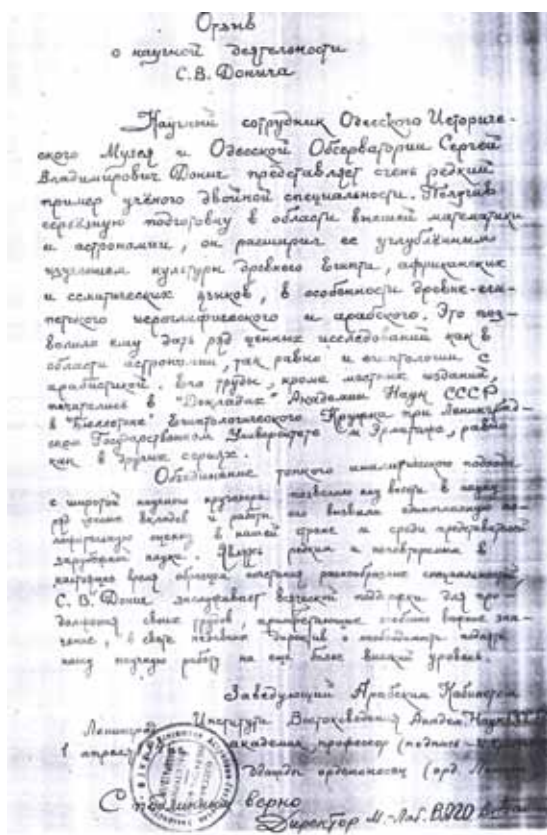 Отзыв
о научной деятельности
С.В. Донича
Научный сотрудник Одесского Историче-
ского Музея и Одесской Обсерватории Сергей
Владимирович Донич представляет очень редкий
пример учёного двойной специальности. Получив
серьёзную подготовку в области высшей математики
и астрономии, он расширил ее углублённым
изучением культуры древнего Египта, африканских
и семитических языков, в особенности древне-еги-
петского иероглифического и арабского. Это поз-
волило ему дать ряд ценных исследований как в
области астрономии, так равно и египтологии с
арабистикой. Его труды, кроме местных изданий,
печатались в "Докладах" Академии Наук СССР
в "Бюллетене" Египтологического Кружка при Ленинград-
ском Государственном Университете и Эрмитаже, равно
как в других сериях.
Объединение тонкого аналитического подхода
с широтой научного кругозора позволило ему внести в науку
ряд ценных вкладов и работы его вызвали
оценку в нашей стране и среди представителей
зарубежной науки. Являясь редким и
настоящее время образцом сочетания разнообразных специальностей,
С. В. Донич заслуживает всяческой поддержки для про-
должения своих трудов, приобретающих особенно важное зна-
чение, в свете недавних директив о необходимости поднять
нашу научную работу на еще более высокий уровень.
Заведующий Арабским Кабинетом
Ленинград Института Востоковедения Академ. Наук СССР
1 апреля академик профессор (подпись
дважды орденоносец (орд. Ленина
С подлинным верно
Директор М.-Лаб. ВАГО